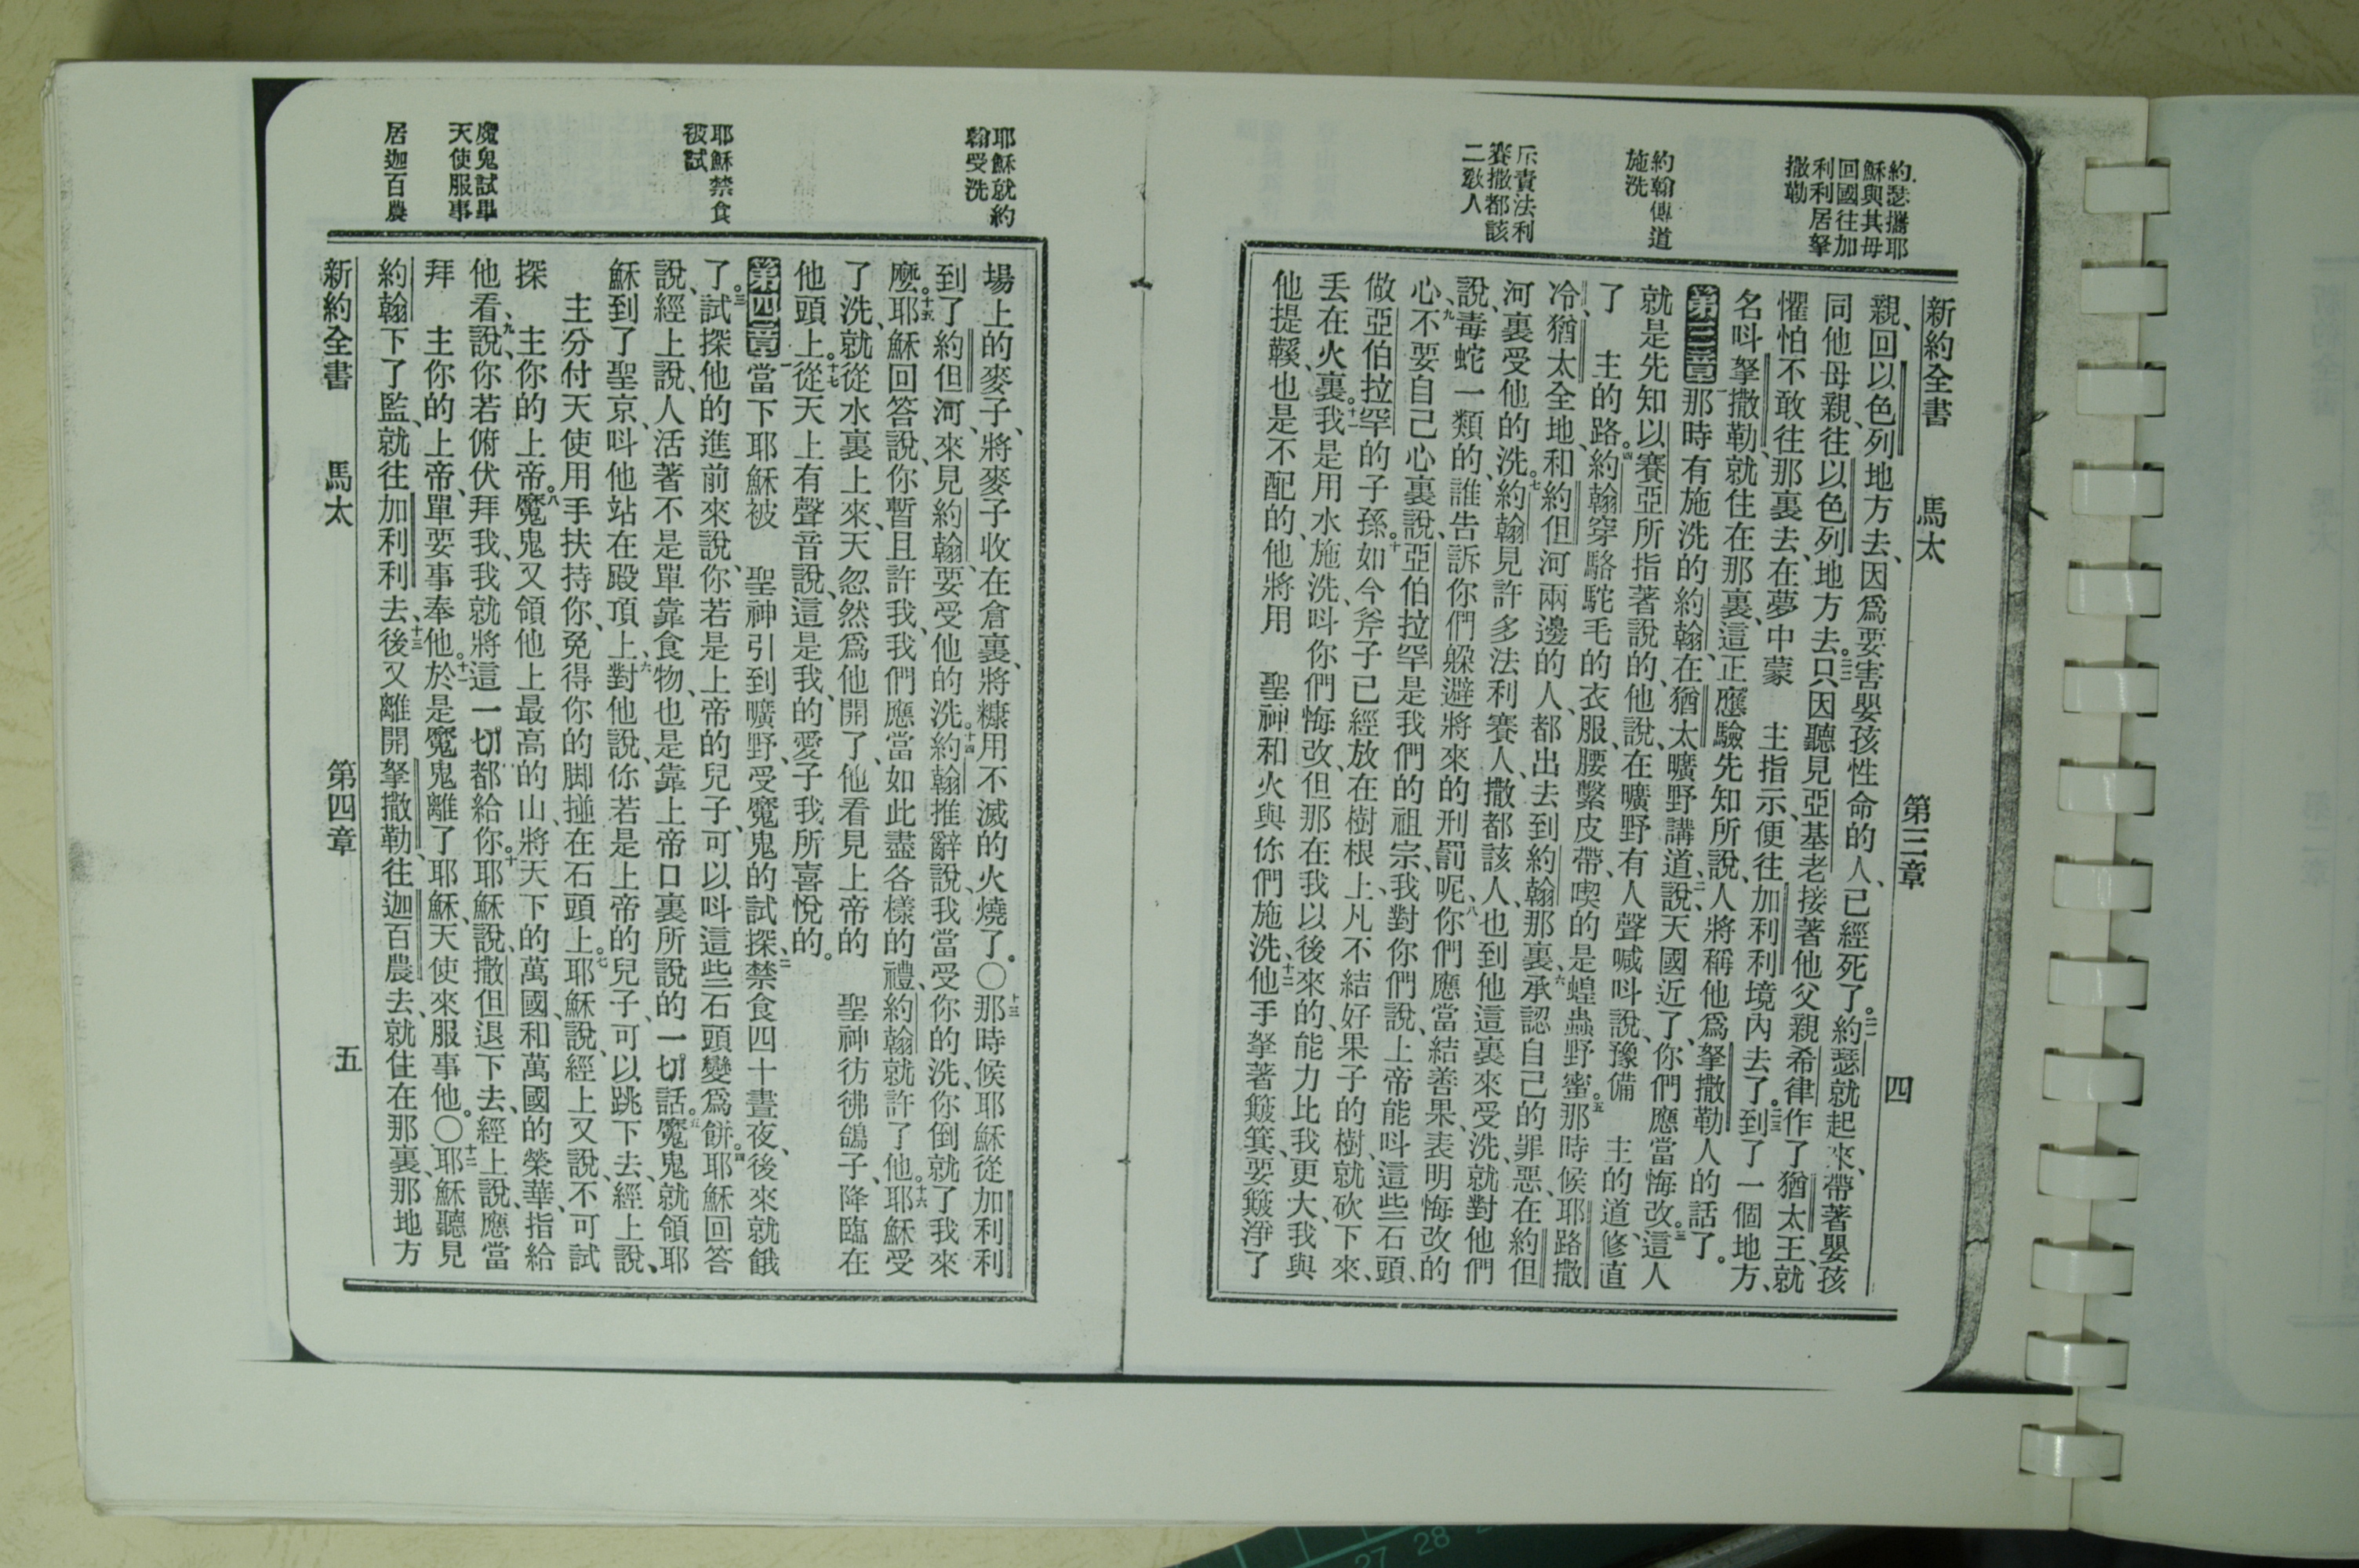 新約全書 馬太 第三章 四
約瑟攜耶
穌與其母
回國往加
利利居拏
撒勒
約翰傳道
施洗
斥責法利
賽撒都該
二敎人
親、回以色列地方去、因爲要害嬰孩性命的人、已經死了。二一約瑟就起來、帶著嬰孩
同他母親、往以色列地方去。二二只因聽見亞基老接著他父親希律作了猶太王、就
懼怕不敢往那裏去、在夢中蒙 主指示、便往加利利境內去了。二三到了一個地方、
名呌拏撒勒、就住在那裏、這正應驗先知所說、人將稱他爲拏撒勒人的話了。
第三章一那時有施洗的約翰、在猶太曠野講道、說、二天國近了、你們應當悔改。三這人
就是先知以賽亞所指著說的、他說、在曠野有人聲喊呌說、豫備 主的道、修直
了 主的路。四約翰穿駱駝毛的衣服、腰繫皮帶、喫的是蝗蟲野蜜。五那時候、耶路撒
冷、猶太全地、和約但河兩邊的人、都出去到約翰那裏、六承認自己的罪惡、在約但
河裏受他的洗。七約翰見許多法利賽人、撒都該人、也到他這裏來受洗、就對他們
說、毒蛇一類的、誰告訴你們躱避將來的刑罰呢、八你們應當結善果、表明悔改的
心、九不要自己心裏說、亞伯拉罕是我們的祖宗、我對你們說、上帝能呌這些石頭、
做亞伯拉罕的子孫。十如今斧子已經放在樹根上、凡不結好果子的樹、就砍下來、
丟在火裏。十一我是用水施洗、呌你們悔改、但那在我以後來的、能力比我更大、我與
他提鞵、也是不配的、他將用 聖神和火與你們施洗、十二他手拏著簸箕、要簸淨了
耶穌就約
翰受洗
耶穌禁食
被試
魔鬼試畢
天使服事
居迦百農
場上的麥子、將麥子收在倉裏、將糠用不滅的火燒了。〇十三那時候耶穌從加利利
到了約但河、來見約翰、要受他的洗。十四約翰推辭說、我當受你的洗、你倒就了我來
麼。十五耶穌回答說、你暫且許我、我們應當如此盡各樣的禮、約翰就許了他。十六耶穌受
了洗、就從水裏上來、天忽然爲他開了、他看見上帝的 聖神彷彿鴿子、降臨在
他頭上。十七從天上有聲音說、這是我的愛子、我所喜悅的。
第四章一當下耶穌被 聖神引到曠野、受魔鬼的試探、二禁食四十晝夜、後來就餓
了。三試探他的進前來說、你若是上帝的兒子、可以呌這些石頭變爲餅。四耶穌回答
說、經上說、人活著不是單靠食物、也是靠上帝口裏所說的一切話。五魔鬼就領耶
穌到了聖京、呌他站在殿頂上、六對他說、你若是上帝的兒子、可以跳下去、經上說、
主分付天使用手扶持你、免得你的脚掽在石頭上。七耶穌說、經上又說、不可試
探 主你的上帝。八魔鬼又領他上最高的山、將天下的萬國、和萬國的榮華、指給
他看、九說、你若俯伏拜我、我就將這一切都給你。十耶穌說、撒但退下去、經上說、應當
拜 主你的上帝、單要事奉他。十一於是魔鬼離了耶穌、天使來服事他。〇十二耶穌聽見
約翰下了監、就往加利利去、十三後又離開拏撒勒、往迦百農去、就住在那裏、那地方
新約全書 馬太 第四章 五
27 28